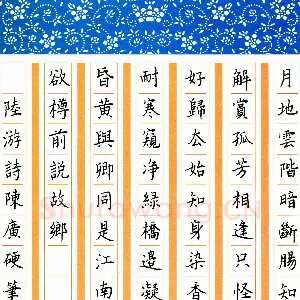 月地雲階暗斷腸知
解賞孤芳相逢只怪
好歸厺始知身染香
耐寒窺净綠橋邊凝
昏黃與卿同是江南
欲樽前說故鄉
陸游詩陳廣硬筆